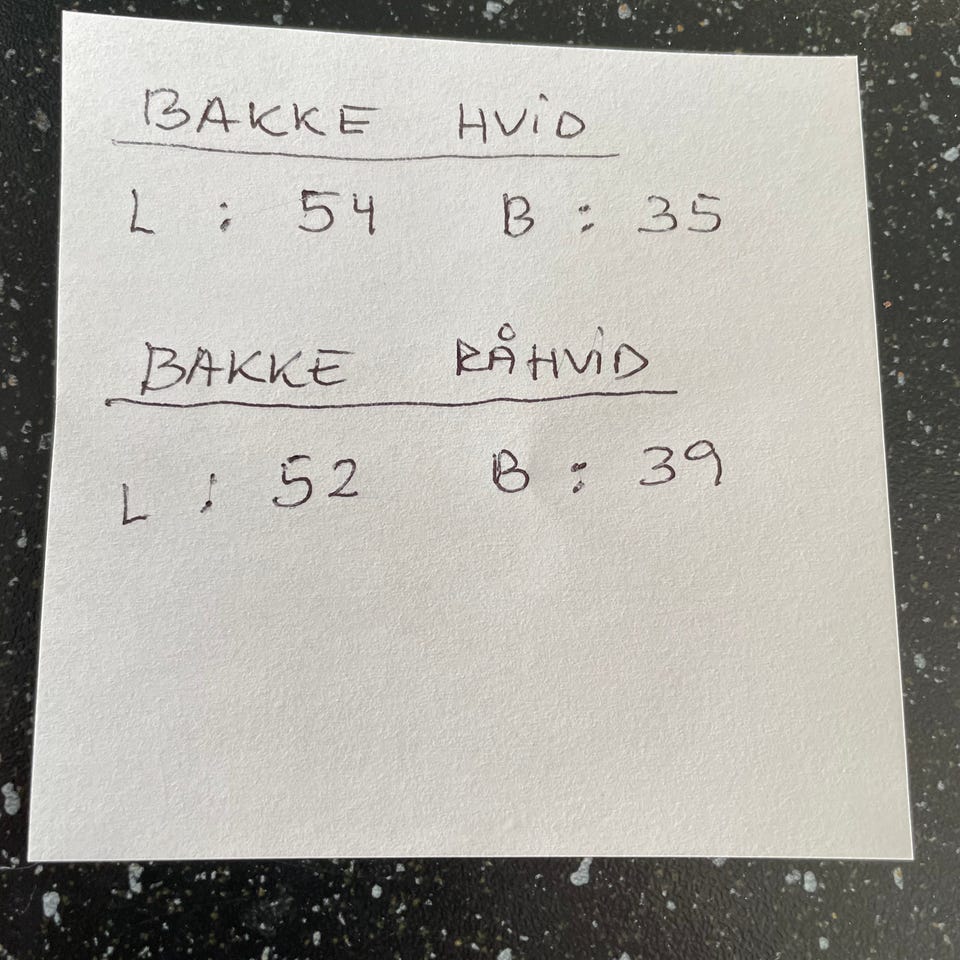 BAKKE HViD
L : 54 B : 35
BAKKE RÅHViD
L : 52 B : 39